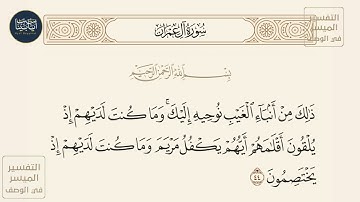 سُورَةُ آلِ عِمْرَان
التفسير
الميسر
في الوصف
بِسْمِ اللَّهِ الرَّحْمَٰنِ الرَّحِيمِ
ذَٰلِكَ مِنْ أَنۢبَآءِ ٱلْغَيْبِ نُوحِيهِ إِلَيْكَ ۚ وَمَا كُنتَ لَدَيْهِمْ إِذْ
يُلْقُونَ أَقْلَٰمَهُمْ أَيُّهُمْ يَكْفُلُ مَرْيَمَ وَمَا كُنتَ لَدَيْهِمْ إِذْ
يَخْتَصِمُونَ ٤٤
التفسير
الميسر
في الوصف